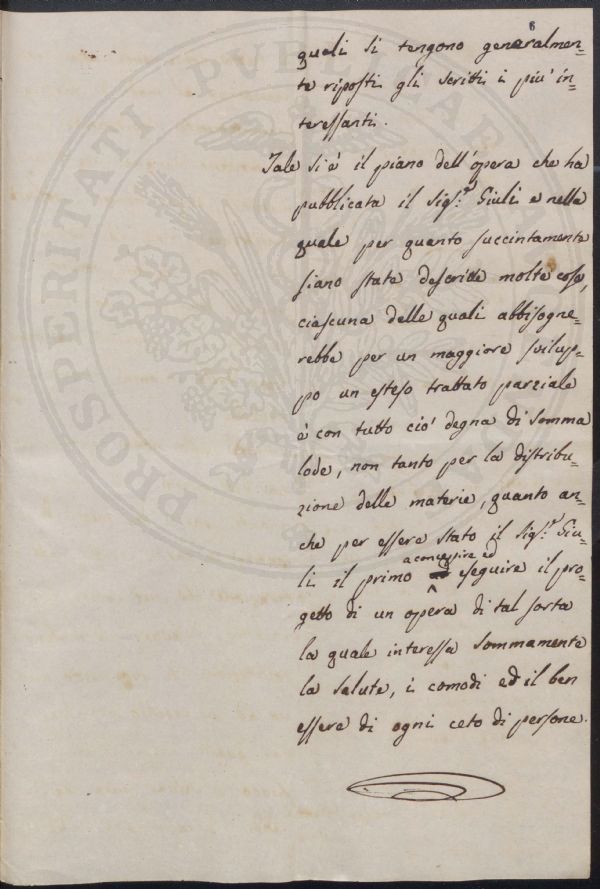 6
quali si tengono generalmen-
te riposti gli scritti i piu' in-
teressanti.
Tale si è il piano dell'opera che ha
pubblicata il Sig.r Giuli e nella
quale per quanto succintamente
siano state descritte molte cose,
ciascuna delle quali abbisogne-
rebbe per un maggiore svilup-
po un esteso trattato parziale
è con tutto ciò degna di somma
lode, non tanto per la distribu-
zione delle materie, quanto an-
che per essere stato il Sig.r Giu-
a concepire ed
li il primo seguire il pro-
getto di un opera di tal sorta
la quale interessa sommamente
la salute, i comodi ed il ben
essere di ogni ceto di persone.
PROSPERITATI PVBLICAE